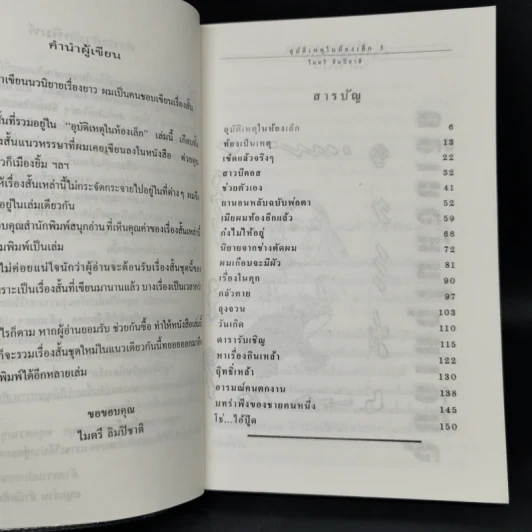 คำนำผู้เขียน
าเขียนนวนิยายเรื่องยาว ผมเป็นคนชอบเขียนเรื่องสั้น
ั้นที่รวมอยู่ใน "อุบัติเหตุในท้องเล็ก" เล่มนี้ เกือบทั้ง
งสั้นแนวหรรษาที่ผมเคยเขียนลงในหนังสือ ต่วยตูน
วก็เมืองยิ้ม ฯลฯ
ให้เรื่องสั้นเหล่านี้ไม่กระจัดกระจายไปอยู่ในที่ต่างๆ ผมจึง
อยู่ในเล่มเดียวกัน
บคุณสำนักพิมพ์สนุกอ่าน ที่เห็นคุณค่าของเรื่องสั้นเหล่านี้
มพิมพ์เป็นเล่ม
ไม่ค่อยแน่ใจนักว่าผู้อ่านจะต้อนรับเรื่องสั้นชุดนี้ของ
ราะเป็นเรื่องสั้นที่เขียนมานานแล้ว บางเรื่องเป็นเวลา
ไรก็ตาม หากผู้อ่านยอมรับ ช่วยกันซื้อ ทำให้หนังสือเล่มนี้
ก็จะรวมเรื่องสั้นชุดใหม่ในแนวเดียวกันนี้ทยอยออกมา
พิมพ์ได้อีกหลายเล่ม
ขอขอบคุณ
ไมตรี ลิมปิชาติ
อุบัติเหตุในท้องเล็ก 5
ไมตรี ลิมปิชาติ
สารบัญ
อุบัติเหตุในท้องเล็ก 6
ท้องเป็นเหตุ 13
เช็ดแล้วจริงๆ 22
สาวบีคอส 32
ช่วยตัวเอง 41
ยานอนหลับฉบับพ่อตา 52
เมียผมท้องอีกแล้ว 59
ก๋งไม่ให้อยู่ 66
นิยายจากช่างตัดผม 72
ผมเกือบจะมีผัว 81
เรื่องในคุก 90
กลัวตาย 97
ลุงจวน 103
วันเกิด 110
ดารารับเชิญ 115
หาเรื่องกินเหล้า 122
ฤิทธิ์เหล้า 130
อารมณ์คนตกงาน 138
บทรำพึงของชายคนหนึ่ง 145
โช่...ไอ้ปู๊ด 150